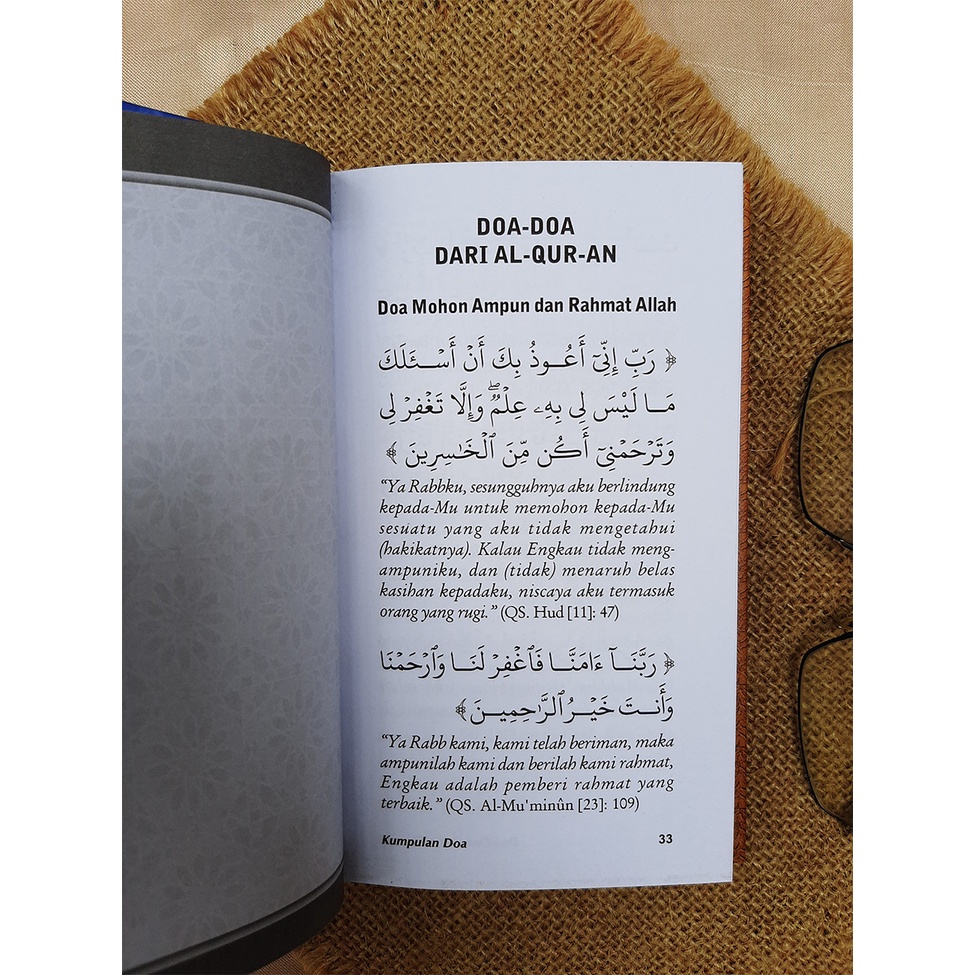 DOA-DOA
DARI AL-QUR-AN
Doa Mohon Ampun dan Rahmat Allah
﴿ رَبِّ إِنِّيٓ أَعُوذُ بِكَ أَنۡ أَسۡـَٔلَكَ
مَا لَيۡسَ لِي بِهِۦ عِلۡمٞۖ وَإِلَّا تَغۡفِرۡ لِي
وَتَرۡحَمۡنِيٓ أَكُن مِّنَ ٱلۡخَٰسِرِينَ ﴾
“Ya Rabbku, sesungguhnya aku berlindung
kepada-Mu untuk memohon kepada-Mu
sesuatu yang aku tidak mengetahui
(hakikatnya). Kalau Engkau tidak meng-
ampuniku, dan (tidak) menaruh belas
kasihan kepadaku, niscaya aku termasuk
orang yang rugi.” (QS. Hud [11]: 47)
﴿ رَبَّنَآ ءَامَنَّا فَٱغۡفِرۡ لَنَا وَٱرۡحَمۡنَا
وَأَنتَ خَيۡرُ ٱلرَّٰحِمِينَ ﴾
“Ya Rabb kami, kami telah beriman, maka
ampunilah kami dan berilah kami rahmat,
Engkau adalah pemberi rahmat yang
terbaik.” (QS. Al-Mu'minûn [23]: 109)
Kumpulan Doa 33